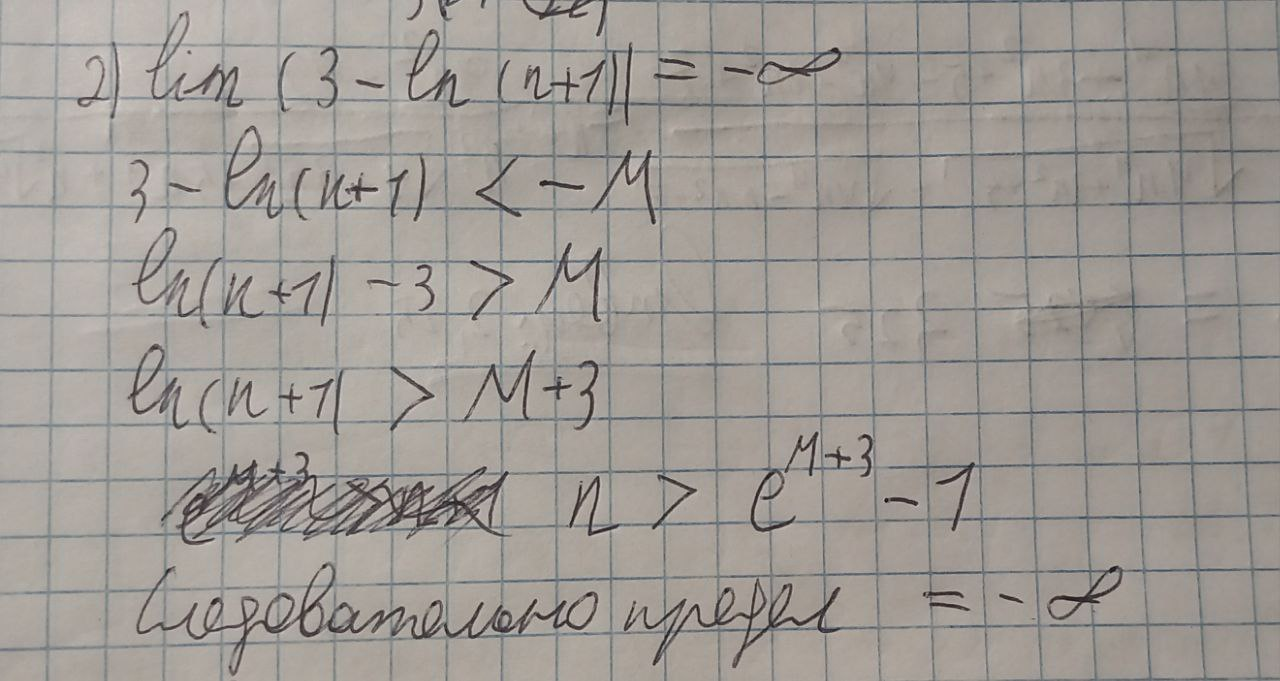 2) lim (3 - ln (n+1)) = -∞
3 - ln(n+1) < -M
ln(n+1) - 3 > M
ln(n+1) > M+3
n > e^{M+3} - 1
Следовательно предел = -∞